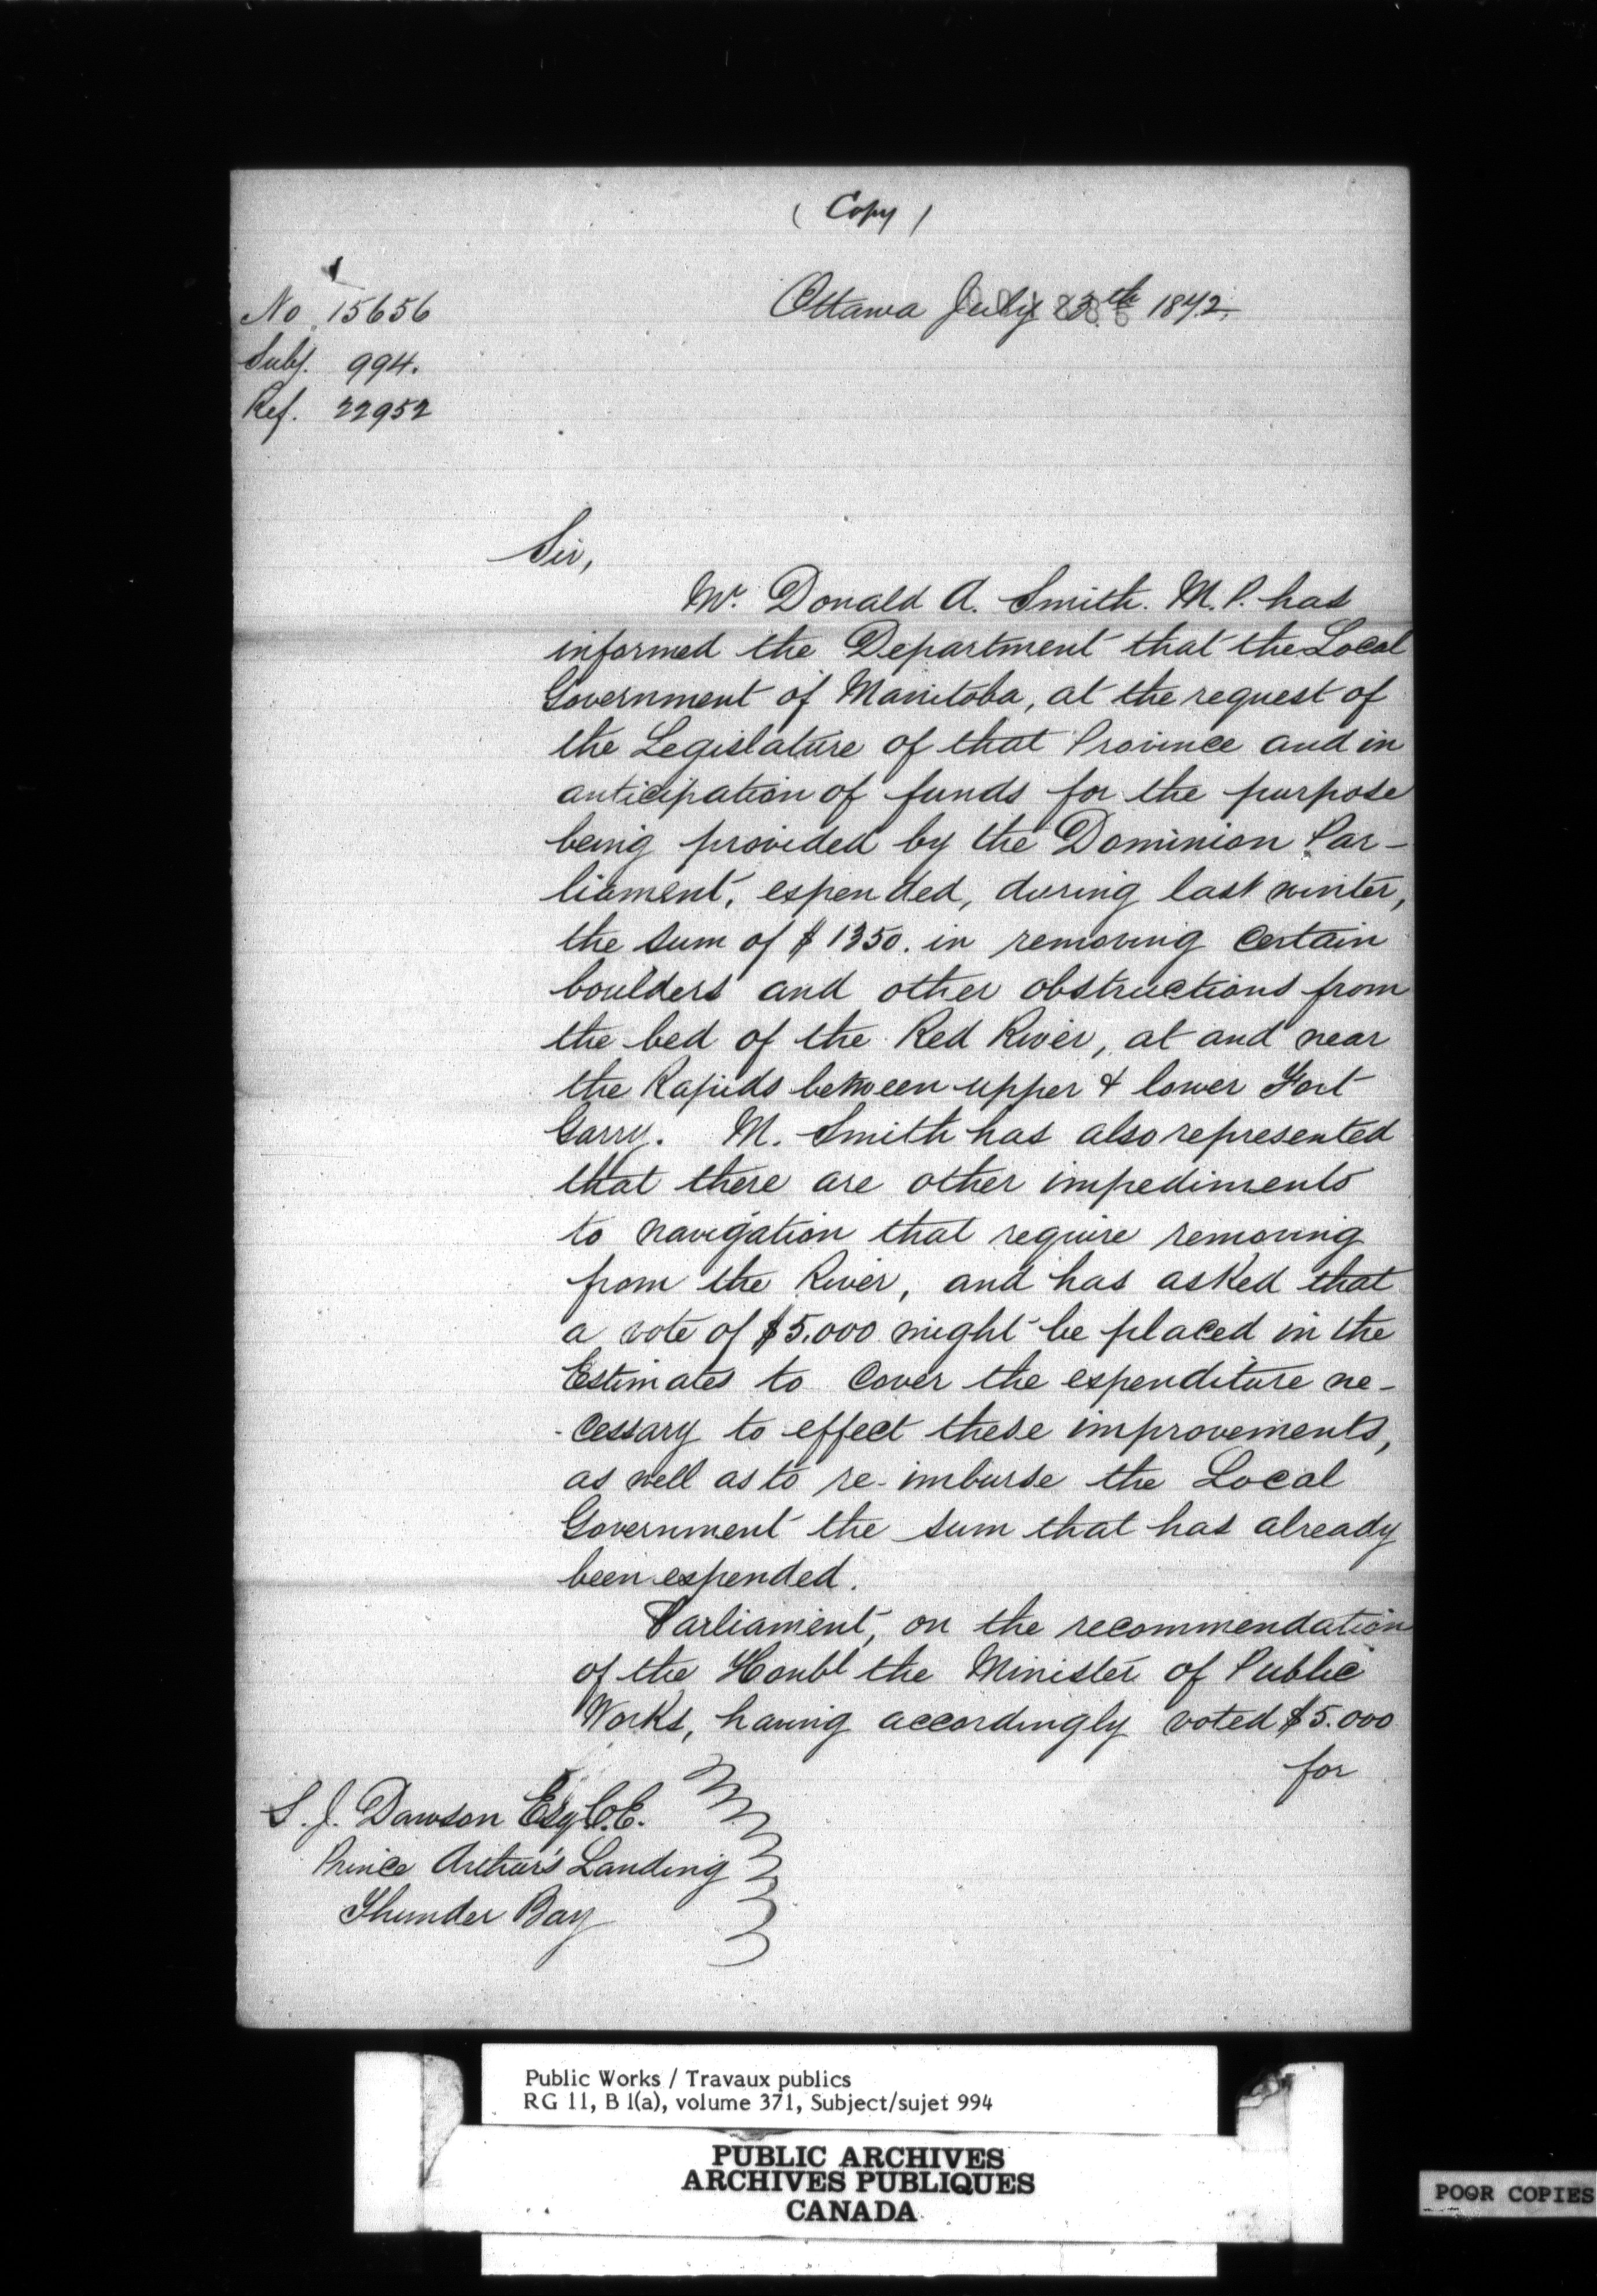 ( Copy )
No 15656
Ottawa July 23th 1872.
Subj. 994.
Ref. 22952
Sir,
Mr. Donald A. Smith. M.P. has
informed the Department that the Local
Government of Manitoba, at the request of
the Legislature of that Province and in
anticipation of funds for the purpose
being provided by the Dominion Par-
liament, expended, during last winter,
the sum of $1350. in removing certain
boulders and other obstructions from
the bed of the Red River, at and near
the Rapids between upper & lower Fort
Garry. M. Smith has also represented
that there are other impediments
to navigation that require removing
from the River, and has asked that
a vote of $5.000 might be placed in the
Estimates to cover the expenditure ne-
-cessary to effect these improvements,
as well as to re-imburse the Local
Government the sum that has already
been expended.
Parliament, on the recommendation
of the Honbl the Minister of Public
Works, having accordingly voted $5.000
for
S. J. Dawson Esq C.E.
Prince Arthur's Landing
Thunder Bay
Public Works / Travaux publics
RG 11, B 1(a), volume 371, Subject/sujet 994
PUBLIC ARCHIVES
ARCHIVES PUBLIQUES
CANADA
POOR COPIES